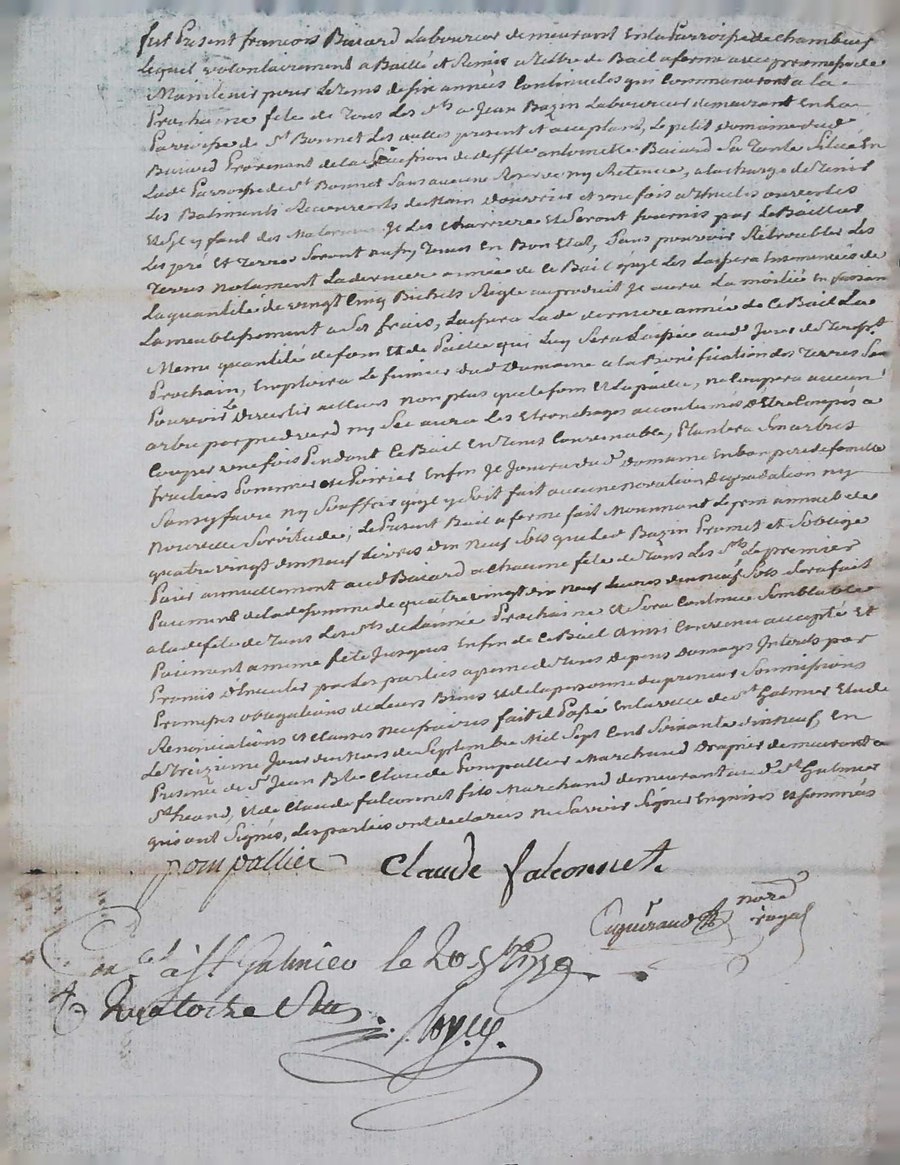 fut Present francois Baiard Laboureur demeurant En la Parroisse de Chambeuf
Lequel volontairement a Baillé et Remis a tiltre de Bail a ferme avec promesse de
Maintenir pour Le tems de six années Continuelles qui Commanceront a la
Prochaine fete de Tous Les Sts a Jean Bazin Laboureur demeurant En la
Parroisse de St Bonnet Les oulles present et acceptant, Le petit domaine dud
Baiard Provenant de la succession de deffte antoinette Baiard Sa Tante Situé En
Lade Parroisse de St Bonnet Sans aucune Reserve ny Retenue, a la charge de Tenir
Les Batiments Recouverts de Main d'ouvrier et une fois a thuiles ouvertes
Et Sil y faut des Materiaux Je Les Charriera et Seront fournis par Le Bailleur
Les pré Et Terres Seront aussy Tenus En Bon Etat, Sans pouvoir Retroubler Les
Terres notament La derniere année de Ce Bail quil Les Laissera Ensemencées de
La quantité de vingt Cinq Bichets Seigle au produit Je aura La moitié En faisant
La meublissement a Ses frais, Laissera Lade derniere année de Ce Bail La
Meme quantité de foin Et de Paille qui Luy Sera Laissée aud Jour de Toussts
Prochain, Employera Le fumier dud Domaine a la Bonification des Terres San
Pouvoir Le Divertir ailleurs non plus que Le foin Et La paille, ne Coupera aucun
arbre par pied verd ny Sec aura Les Etronchages accoutumés d'Etre Coupés a
Couper une fois Pendant Ce Bail En Tems Convenable, Plantera Six arbres
fruitiers Pommier et Poirier Enfin Je Jouira dud Domaine En bon pere de famille
Sans y faire ny Souffrir quil y Soit fait aucune novation Degradation ny
nouvelle Servitude, Le Present Bail a ferme fait Moyennant Le prix annuel de
quatre vingt dix neuf Livres dix neuf Sols que Led Bazin Promet et S'oblige
Paier annuellement aud Baiard a Chaune fete de Tous Les Sts Le premier
Paiement de Lade Somme de quatre vingt dix neuf Livres dix neuf Sols Sera fait
a lade fete de Tous Les Sts de L'année Prochaine et Sera Continué Semblable
Paiment a meme fete Jusques Enfin de Ce Bail ainsi Convenu accepté Et
Promis d'Executer par Les parties a peine de Tous depens Domages Interets par
Promesses obligations de Leurs Biens et de la personne du preneur Sommissions
Renonciations et clauses necessaires fait et Passé En La ville de St Galmier Etude
Le treizieme Jour du Mois de Septembre Mil Sept Cent Soixante dix neuf, En
Presence de Sr Jean Bte Claude Pompallier Marchand Drapier demeurant a
St heand, Et de Claude falconnet fils Marchand demeurant aud St Galmier
qui ont Signés, Les parties ont declarés ne Savoir Signer Enquises et Sommés
pompallier Claude falconnet
nore
royal
à St Galmier le 20 7bre 1779.